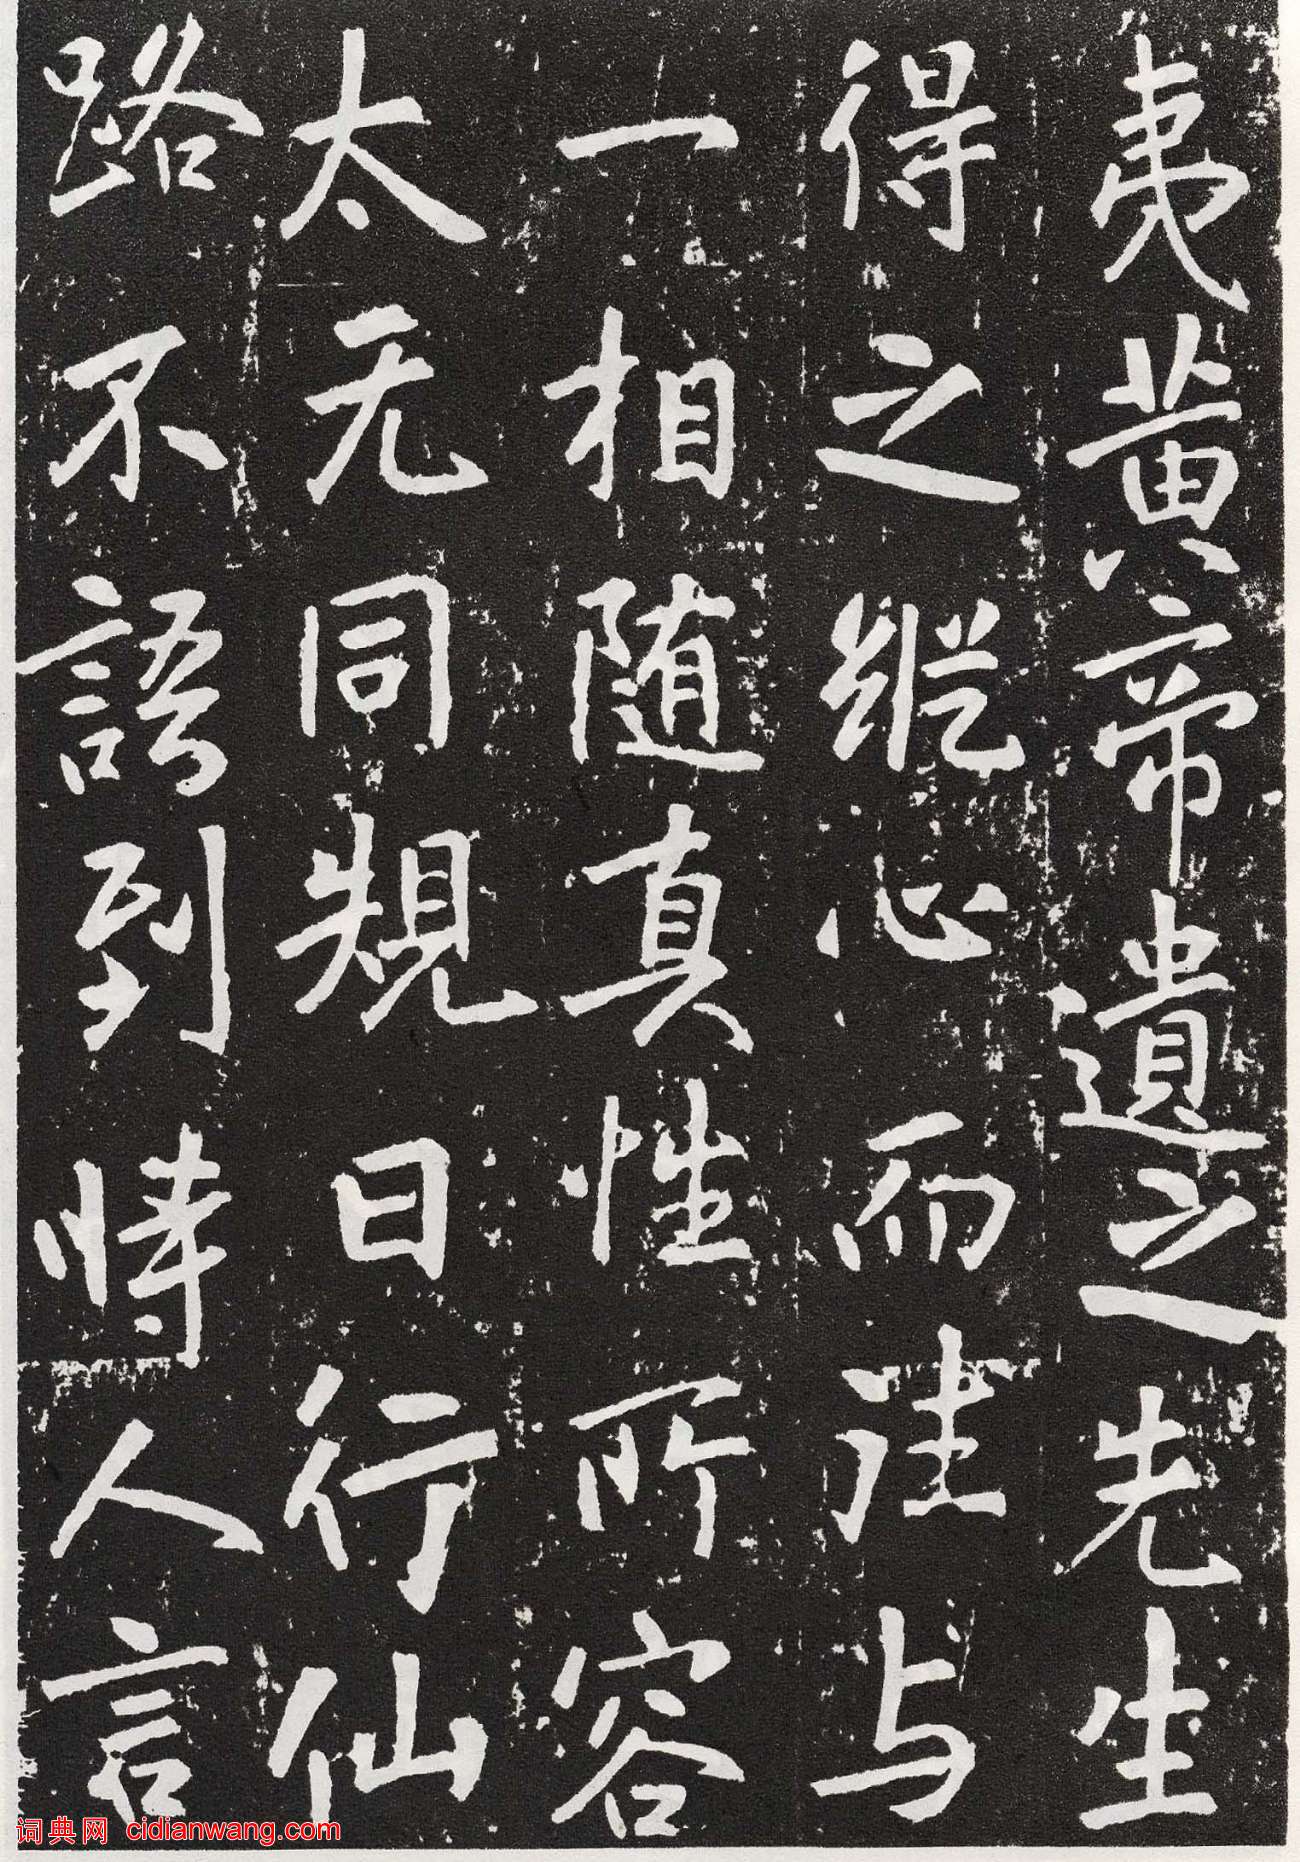 夷黄帝遺之先生
得之縱心而往与
一相随真性所容
太无同規日行仙
路不語到時人言
词典网 cidianwang.com